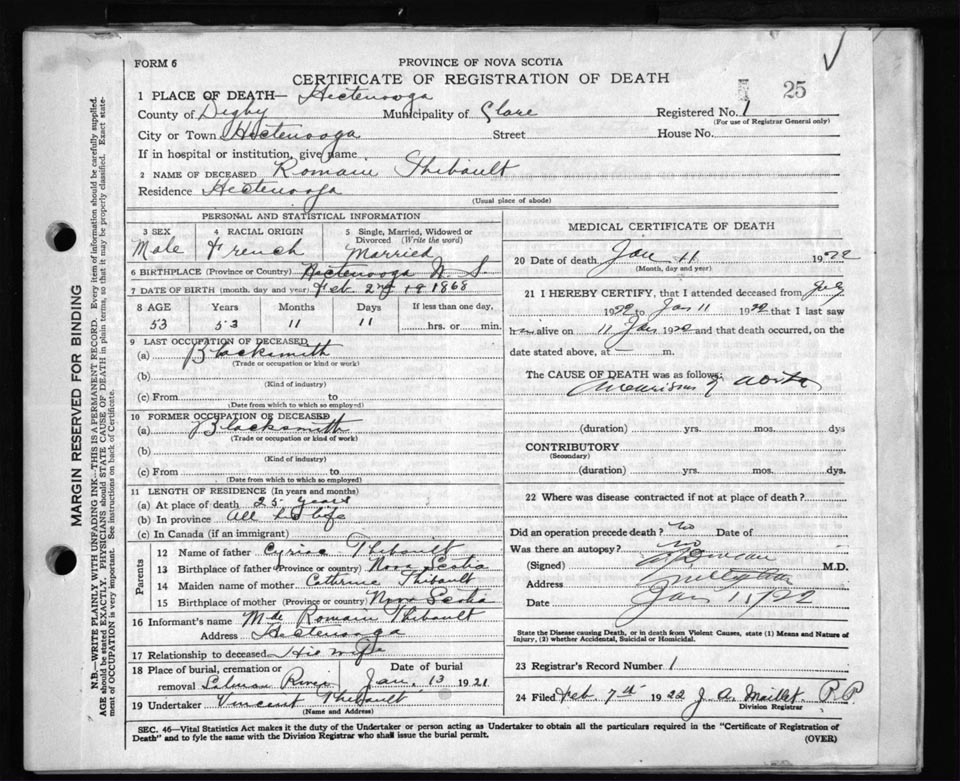 FORM 6
PROVINCE OF NOVA SCOTIA
CERTIFICATE OF REGISTRATION OF DEATH
25
1 PLACE OF DEATH— Hectenooga
County of Digby Municipality of Clare Registered No. 1
(For use of Registrar General only)
City or Town Hectenooga Street House No.
If in hospital or institution, give name
2 NAME OF DECEASED Romain Thibault
Residence Hectenooga
(Usual place of abode)
PERSONAL AND STATISTICAL INFORMATION
3 SEX 4 RACIAL ORIGIN 5 Single, Married, Widowed or Divorced (Write the word)
Male French Married
6 BIRTHPLACE (Province or Country) Hectenooga N. S.
7 DATE OF BIRTH (month, day and year) Feb 2nd 1868
8 AGE Years Months Days If less than one day,
53 53 11 11 hrs. or min.
9 LAST OCCUPATION OF DECEASED
(a) Blacksmith
(Trade or occupation or kind of work)
(b)
(Kind of industry)
(c) From to
(Date from which to which so employed)
10 FORMER OCCUPATION OF DECEASED
(a) Blacksmith
(Trade or occupation or kind of work)
(b)
(Kind of industry)
(c) From to
(Date from which to which so employed)
11 LENGTH OF RESIDENCE (In years and months)
(a) At place of death 25 years
(b) In province All his life
(c) In Canada (if an immigrant)
Parents
12 Name of father Cyriac Thibault
13 Birthplace of father (Province or country) Nova Scotia
14 Maiden name of mother Cathrine Thibault
15 Birthplace of mother (Province or country) Nova Scotia
16 Informant's name Mde Romain Thibault
Address Hectenooga
17 Relationship to deceased His wife
18 Place of burial, cremation or Date of burial
removal Salmon River Jan. 13 1921
19 Undertaker Vincent Thibault
(Name and Address)
MEDICAL CERTIFICATE OF DEATH
20 Date of death Jan 11 1922
(Month, day and year)
21 I HEREBY CERTIFY, that I attended deceased from July
1920 to Jan 11 1922 that I last saw
him alive on 11 Jan 1922 and that death occurred, on the
date stated above, at — m.
The CAUSE OF DEATH was as follows:
Aneurism of aorta
(duration) yrs. mos. dys
CONTRIBUTORY
(Secondary)
(duration) yrs. mos. dys.
22 Where was disease contracted if not at place of death?
Did an operation precede death? No Date of
Was there an autopsy? No
(Signed) M.D.
Address
Date Jan 1922
State the Disease causing Death, or in death from Violent Causes, state (1) Means and Nature of
Injury, (2) whether Accidental, Suicidal or Homicidal.
23 Registrar's Record Number 1
24 Filed Feb 7th 1922 J. A. Maillet P.P.
Division Registrar
SEC. 46—Vital Statistics Act makes it the duty of the Undertaker or person acting as Undertaker to obtain all the particulars required in the "Certificate of Registration of
Death" and to fyle the same with the Division Registrar who shall issue the burial permit.
(OVER)
MARGIN RESERVED FOR BINDING
N.B.—WRITE PLAINLY WITH UNFADING INK—THIS IS A PERMANENT RECORD. Every item of information should be carefully supplied.
AGE should be stated EXACTLY. PHYSICIANS should STATE CAUSE OF DEATH in plain terms, so that it may be properly classified. Exact state-
ment of OCCUPATION is very important. See instructions on back of Certificate.